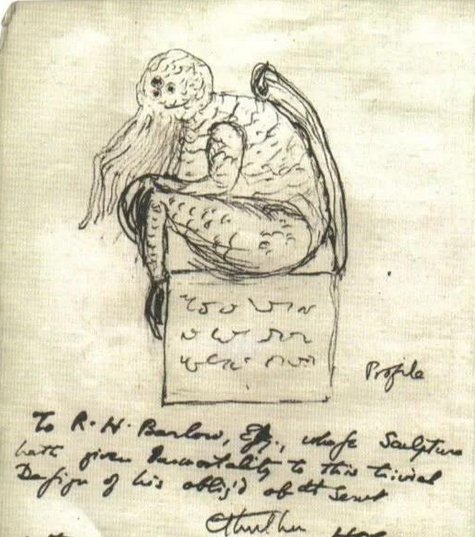 Profile
To R. H. Barlow, Esq., whose Sculpture
hath given Immortality to this trivial
Design of his oblig'd obt Servt
Cthulhu HPL